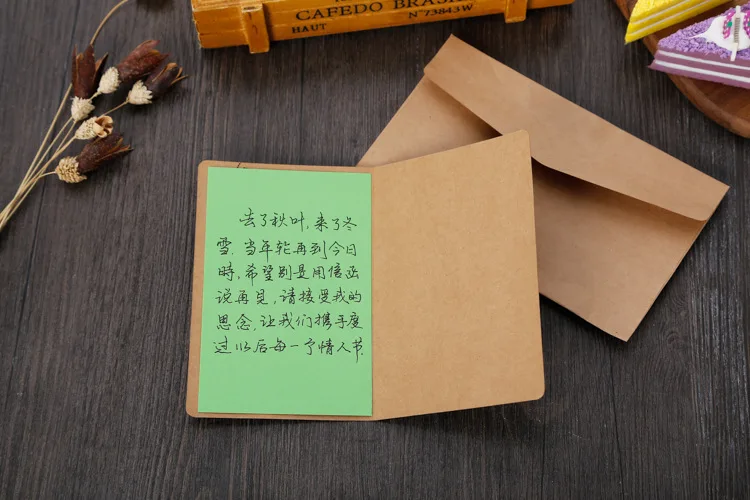 CAFEDO BRASIL
HAUT N 73843W
去了秋叶，来了冬
雪，当年轮再到今日
時，希望别是用信函
说再见，请接受我的
思念，让我们携手度
过以后每一个情人节．